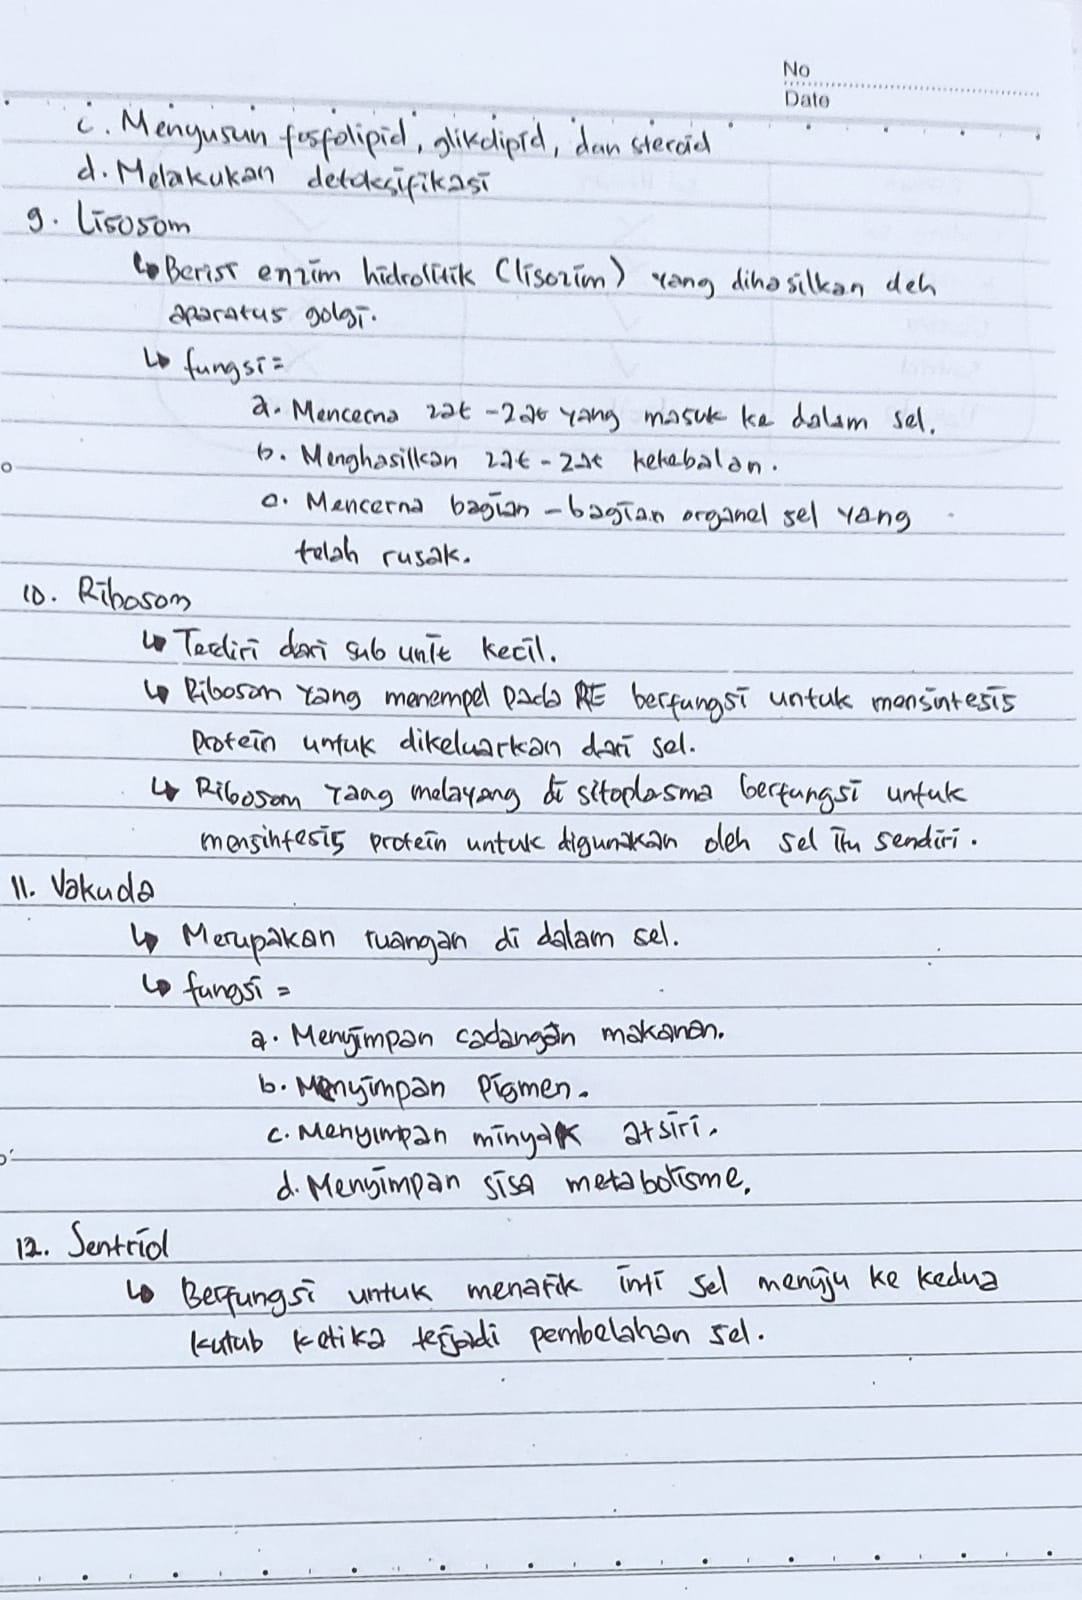 No
Date
c. Menyusun fosfolipid, glikolipid, dan steroid
d. Melakukan detoksifikasi
9. Lisosom
↳ Berisi enzim hidrolitik (lisozim) yang dihasilkan oleh
aparatus golgi.
↳ fungsi =
a. Mencerna zat-zat yang masuk ke dalam sel.
b. Menghasilkan zat-zat kekebalan.
c. Mencerna bagian-bagian organel sel yang
telah rusak.
10. Ribosom
↳ Terdiri dari sub unit kecil.
↳ Ribosom yang menempel pada RE berfungsi untuk mensintesis
protein untuk dikeluarkan dari sel.
↳ Ribosom yang melayang di sitoplasma berfungsi untuk
mensintesis protein untuk digunakan oleh sel itu sendiri.
11. Vakuola
↳ Merupakan ruangan di dalam sel.
↳ fungsi =
a. Menyimpan cadangan makanan.
b. Menyimpan pigmen.
c. Menyimpan minyak atsiri.
d. Menyimpan sisa metabolisme.
12. Sentriol
↳ Berfungsi untuk menarik inti sel menuju ke kedua
kutub ketika terjadi pembelahan sel.